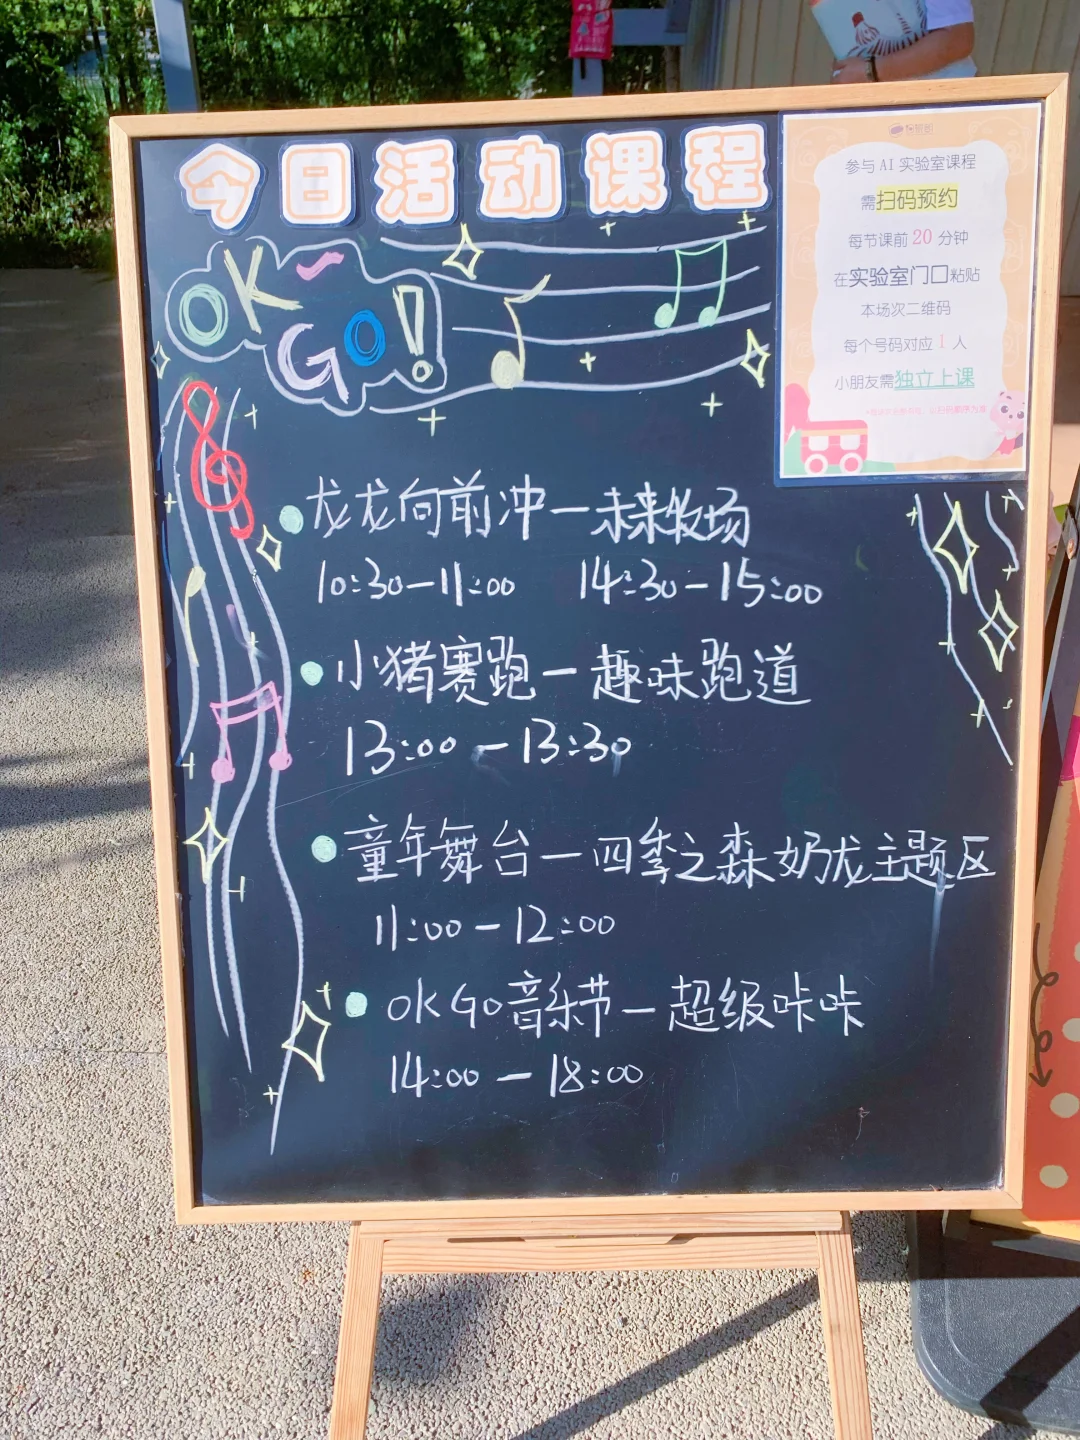 今日活动课程
OK
GO!
参与 AI 实验室课程
需扫码预约
每节课前 20 分钟
在实验室门口粘贴
本场次二维码
每个号码对应 1 人
小朋友需独立上课
龙龙向前冲—未来牧场
10:30—11:00 14:30—15:00
小猪赛跑—趣味跑道
13:00—13:30
童年舞台—四季之森奶龙主题区
11:00—12:00
OKGo音乐节—超级咔咔
14:00—18:00